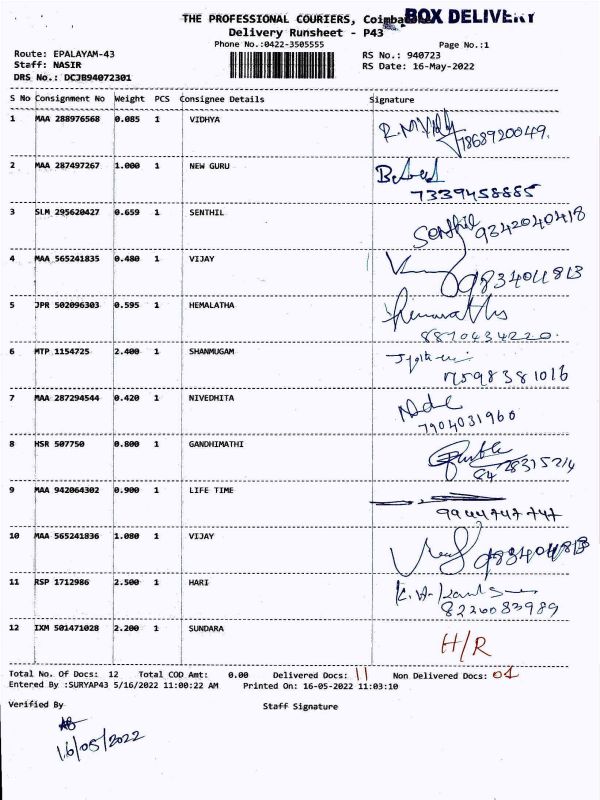 THE PROFESSIONAL COURIERS, Coimba
BOX DELIVERY
Delivery Runsheet - P43
Phone No.:0422-3505555
Page No.:1
Route: EPALAYAM-43
RS No.: 940723
Staff: NASIR
RS Date: 16-May-2022
DRS No.: DCJB94072301
S No Consignment No Weight PCS Consignee Details Signature
1 MAA 288976568 0.085 1 VIDHYA
2 MAA 287497267 1.000 1 NEW GURU
7339458885
3 SLM 295620427 0.659 1 SENTHIL Senthil
9342040418
4 MAA 565241835 0.480 1 VIJAY
5 JPR 502096303 0.595 1 HEMALATHA
8870434220.
6 MTP 1154725 2.400 1 SHANMUGAM
7598381016
7 MAA 287294544 0.420 1 NIVEDHITA
7904031960
8 HSR 507750 0.800 1 GANDHIMATHI
9 MAA 942064302 0.900 1 LIFE TIME
9944747747
10 MAA 565241836 1.080 1 VIJAY
11 RSP 1712986 2.500 1 HARI
8220083989
12 IXM 501471028 2.200 1 SUNDARA H/R
Total No. Of Docs: 12 Total COD Amt: 0.00 Delivered Docs: 11 Non Delivered Docs: 01
Entered By :SURYAP43 5/16/2022 11:00:22 AM Printed On: 16-05-2022 11:03:10
Verified By Staff Signature
16/05/2022